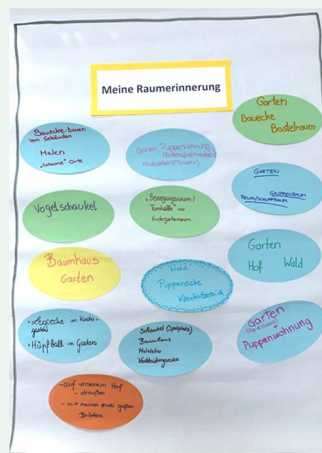 Meine Raumerinnerung
Garten
Bauecke
Bastelraum
Bauecke: bauen
von Gebäuden
Malen
"Geheime" Orte
Garten, Puppenwohnung
GARTEN
GRUPPENRAUM
Vogelschaukel
"Bewegungsraum/
Turnhalle" im
Kindergartenraum
Garten
Hof Wald
Baumhaus
Garten
Wald
Puppenecke
Kreativbereich
Garten
Puppenwohnung
Hüpfball im Garten
Schaukel (Spielplatz)
Baumhaus
Malecke
Verkleidungsecke
- auf unserem Hof
- draußen
- mit meinen zwei großen
Brüdern